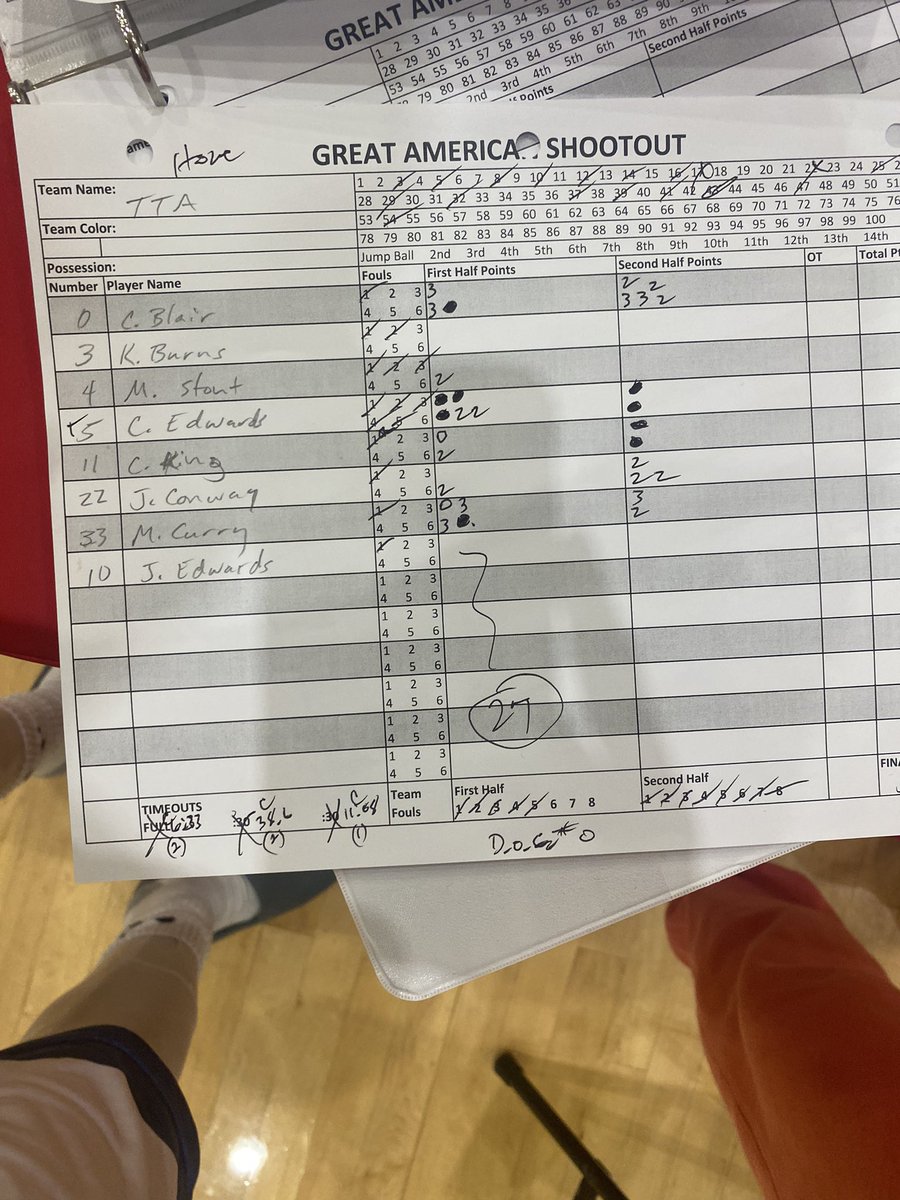 GREAT AM
1 2 3 4 5 6 7 8
28 29 30 31 32 33 34 35 36
53 54 55 56 57 58 59 60 61 62 63
79 80 81 82 83 84 85 86 87 88 89 90
2nd 3rd 4th 5th 6th 7th 8th 9th
Second Half Points
Points
GREAT AMERICA SHOOTOUT
Team Name: TTA
1 2 3 4 5 6 7 8 9 10 11 12 13 14 15 16 17 18 19 20 21 22 23 24 25
28 29 30 31 32 33 34 35 36 37 38 39 40 41 42 43 44 45 46 47 48 49 50 51
53 54 55 56 57 58 59 60 61 62 63 64 65 66 67 68 69 70 71 72 73 74 75 76
Team Color:
78 79 80 81 82 83 84 85 86 87 88 89 90 91 92 93 94 95 96 97 98 99 100
Possession:
Jump Ball 2nd 3rd 4th 5th 6th 7th 8th 9th 10th 11th 12th 13th 14th
Number Player Name Fouls First Half Points Second Half Points OT Total Pt
1 2 3 3 2 2
0 C. Blair 4 5 6 3 3 3 2
1 2 3
3 K. Burns 4 5 6
1 2 3
4 M. Stout 4 5 6 2
1 2 3
5 C. Edwards 4 5 6 2 2
1 2 3 0
11 C. King 4 5 6 2 2
1 2 3 2 2
22 J. Conway 4 5 6 2 3
1 2 3 0 3 2
33 M. Curry 4 5 6 3
1 2 3
10 J. Edwards 4 5 6
1 2 3
4 5 6
1 2 3
4 5 6
1 2 3
4 5 6
1 2 3
4 5 6
27
1 2 3
4 5 6
1 2 3
4 5 6
TIMEOUTS Team Fouls First Half 1 2 3 4 5 6 7 8 Second Half 1 2 3 4 5 6 7 8 FIN
FULL
(2) (2) (1)